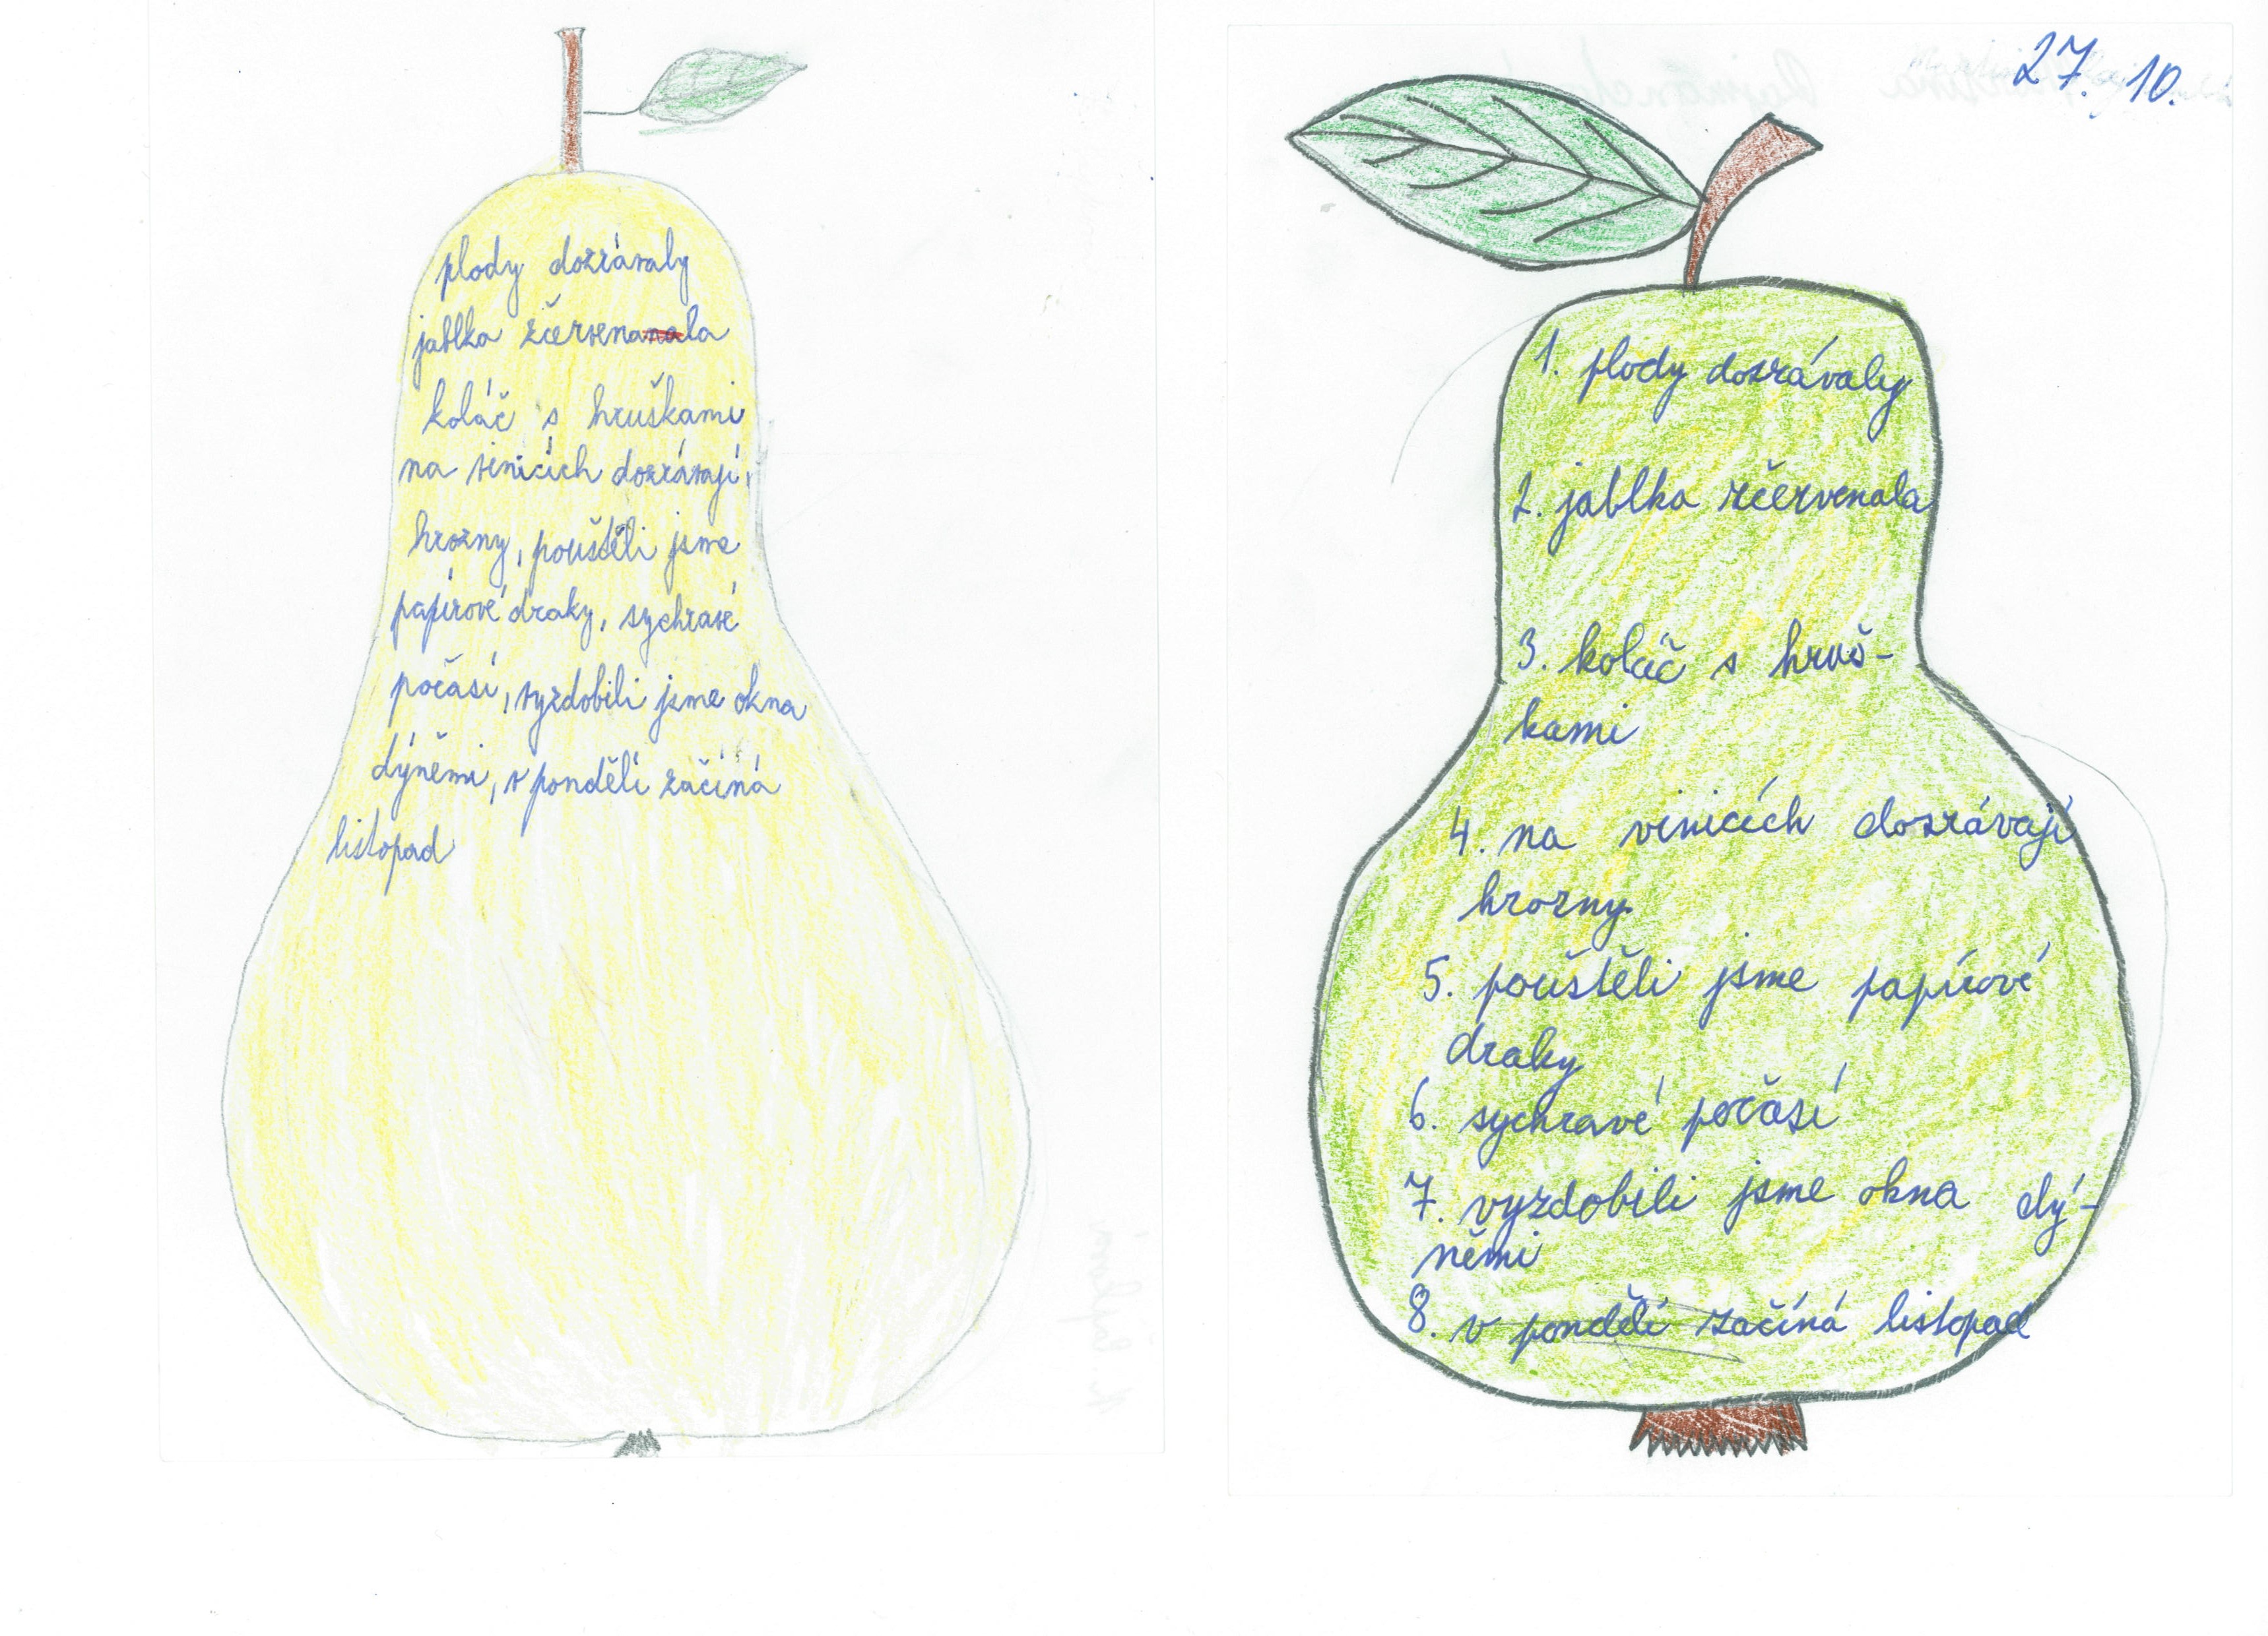 plody dozrávaly
jablka zčervenanala
koláč s hruškami
na vinicích dozrávají,
hrozny, pouštěli jsme
papírové draky, sychravé
počasí, vyzdobili jsme okna
dýněmi, v pondělí začíná
listopad
27. 10.
1. plody dozrávaly
2. jablka zčervenala
3. koláč s hruš-
kami
4. na vinicích dozrávají
hrozny
5. pouštěli jsme papírové
draky
6. sychravé počasí
7. vyzdobili jsme okna dý-
němi
8. v pondělí začíná listopad